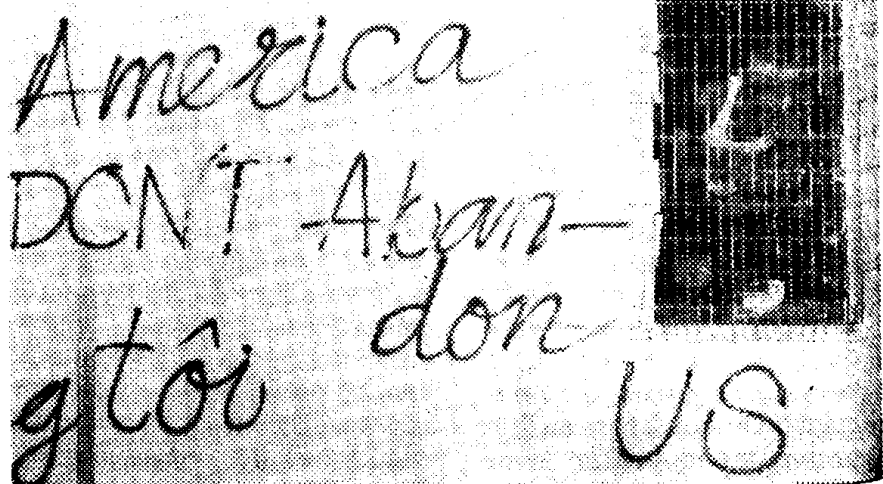 America
DON'T Aban-
don
US
g tôi